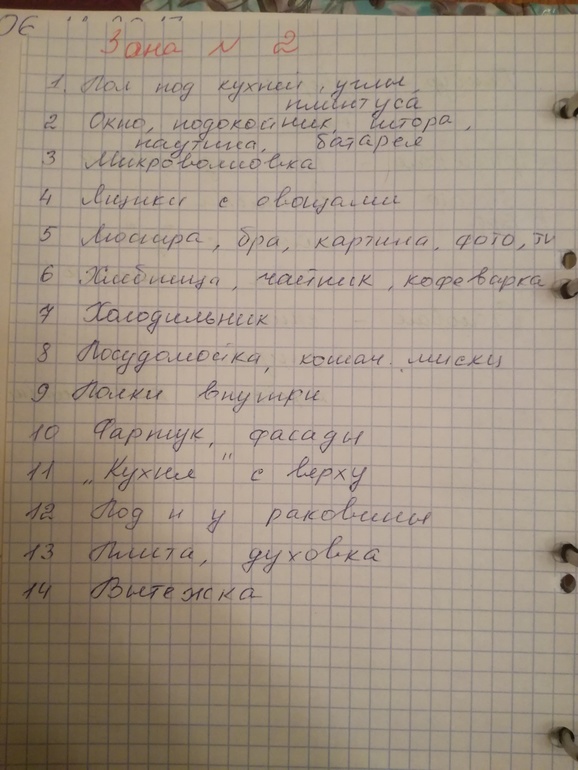 06
Зона № 2
1. Пол под кухней, углы,
плинтуса
2 Окно, подоконник, штора,
паутина, батарея
3 Микроволновка
4 Ящики с овощами
5 Люстра, бра, картина, фото, тв
6 Хлебница, чайник, кофеварка
7 Холодильник
8 Посудомойка, кошач. миски
9 Полки внутри
10 Фартук, фасады
11 „Кухня" с верху
12 Под и у раковины
13 Плита, духовка
14 Вытежка